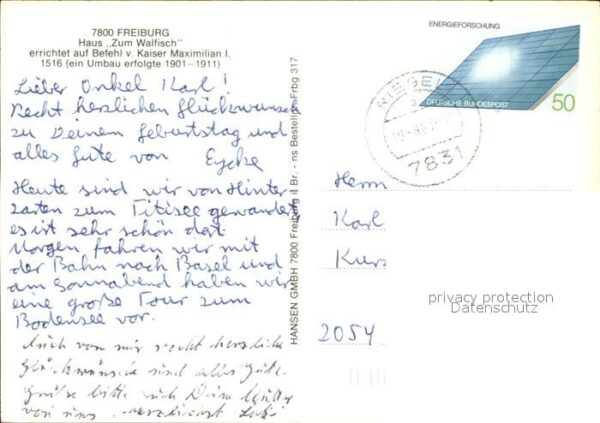 7800 FREIBURG
Haus „Zum Walfisch"
errichtet auf Befehl v. Kaiser Maximilian I.
1516 (ein Umbau erfolgte 1901-1911)
Lieber Onkel Karl!
Recht herzlichen Glückwunsch
zu Deinem Geburtstag und
alles Gute von Eycke
Heute sind wir von Hinter
zarten zum Titisee gewandert
es ist sehr schön dort
Morgen fahren wir mit
der Bahn nach Basel und
am Sonnabend haben wir
eine große Tour zum
Bodensee vor.
Auch von mir recht herzliche
Glückwünsche und alles Gute.
Grüße bitte auch Deine
von uns
HANSEN GMBH 7800 Freiburg II Br. - ns Bestellnr. Frbg 317
ENERGIEFORSCHUNG
DEUTSCHE BUNDESPOST
50
RIEGEL
7831
Herrn
Karl
Kurz
privacy protection
Datenschutz
2054